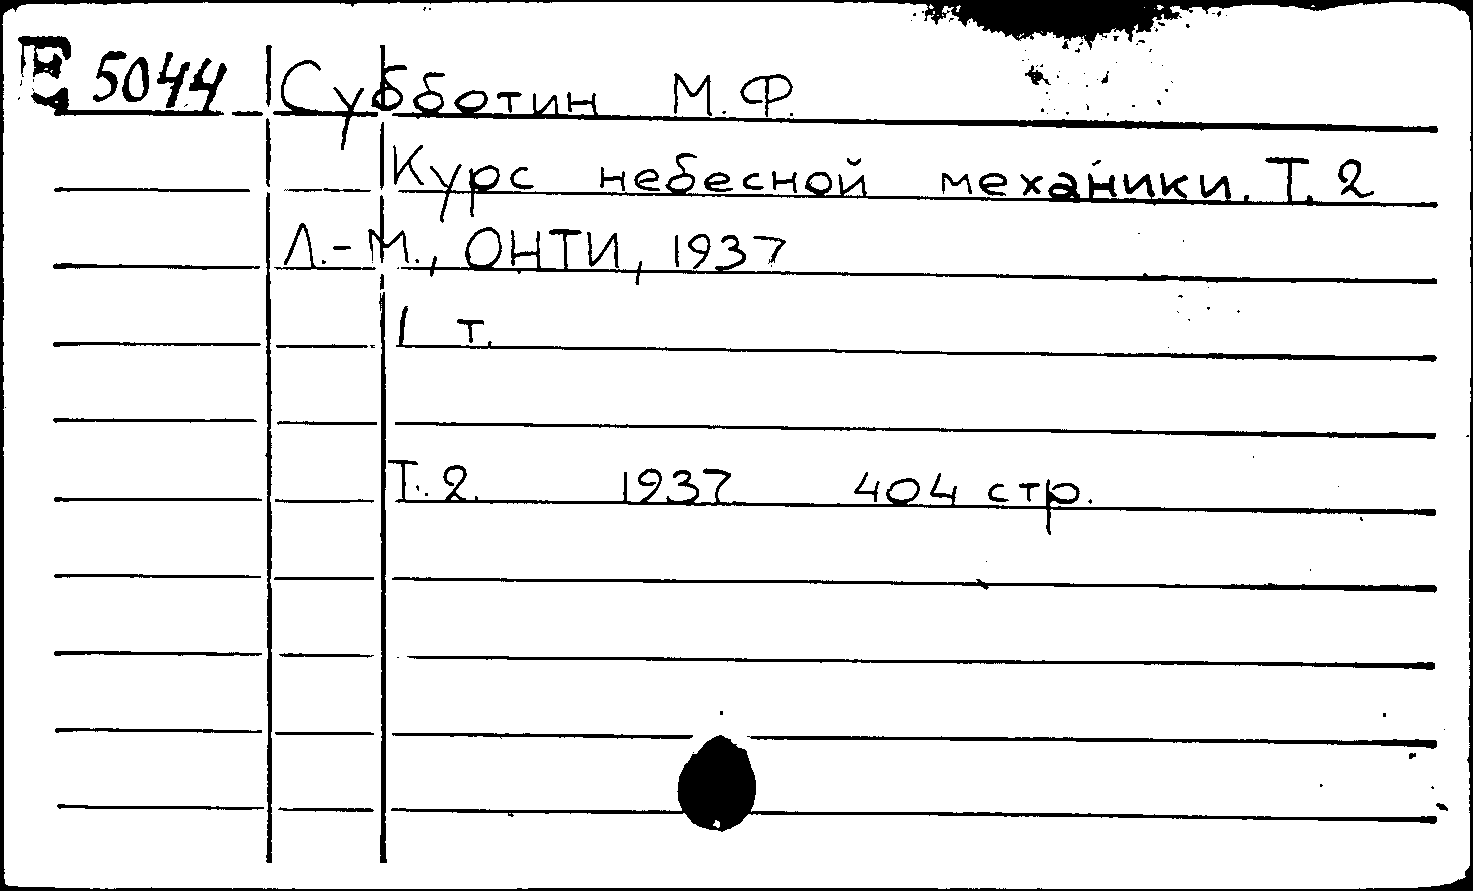 Е 5044 Субботин М.Ф.
Курс небесной механики. Т. 2
Л.-М., ОНТИ, 1937
1 т.
Т. 2. 1937 404 стр.